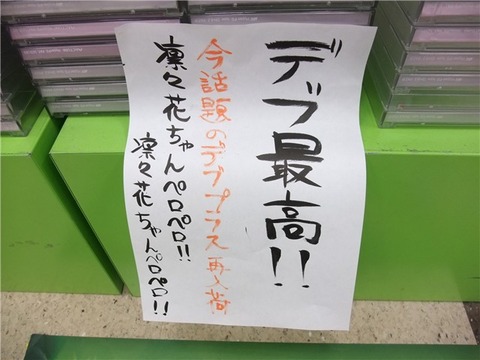 デブ最高!!
今話題のデブプラス再入荷
凛々花ちゃんペロペロ!!
凛々花ちゃんペロペロ!!